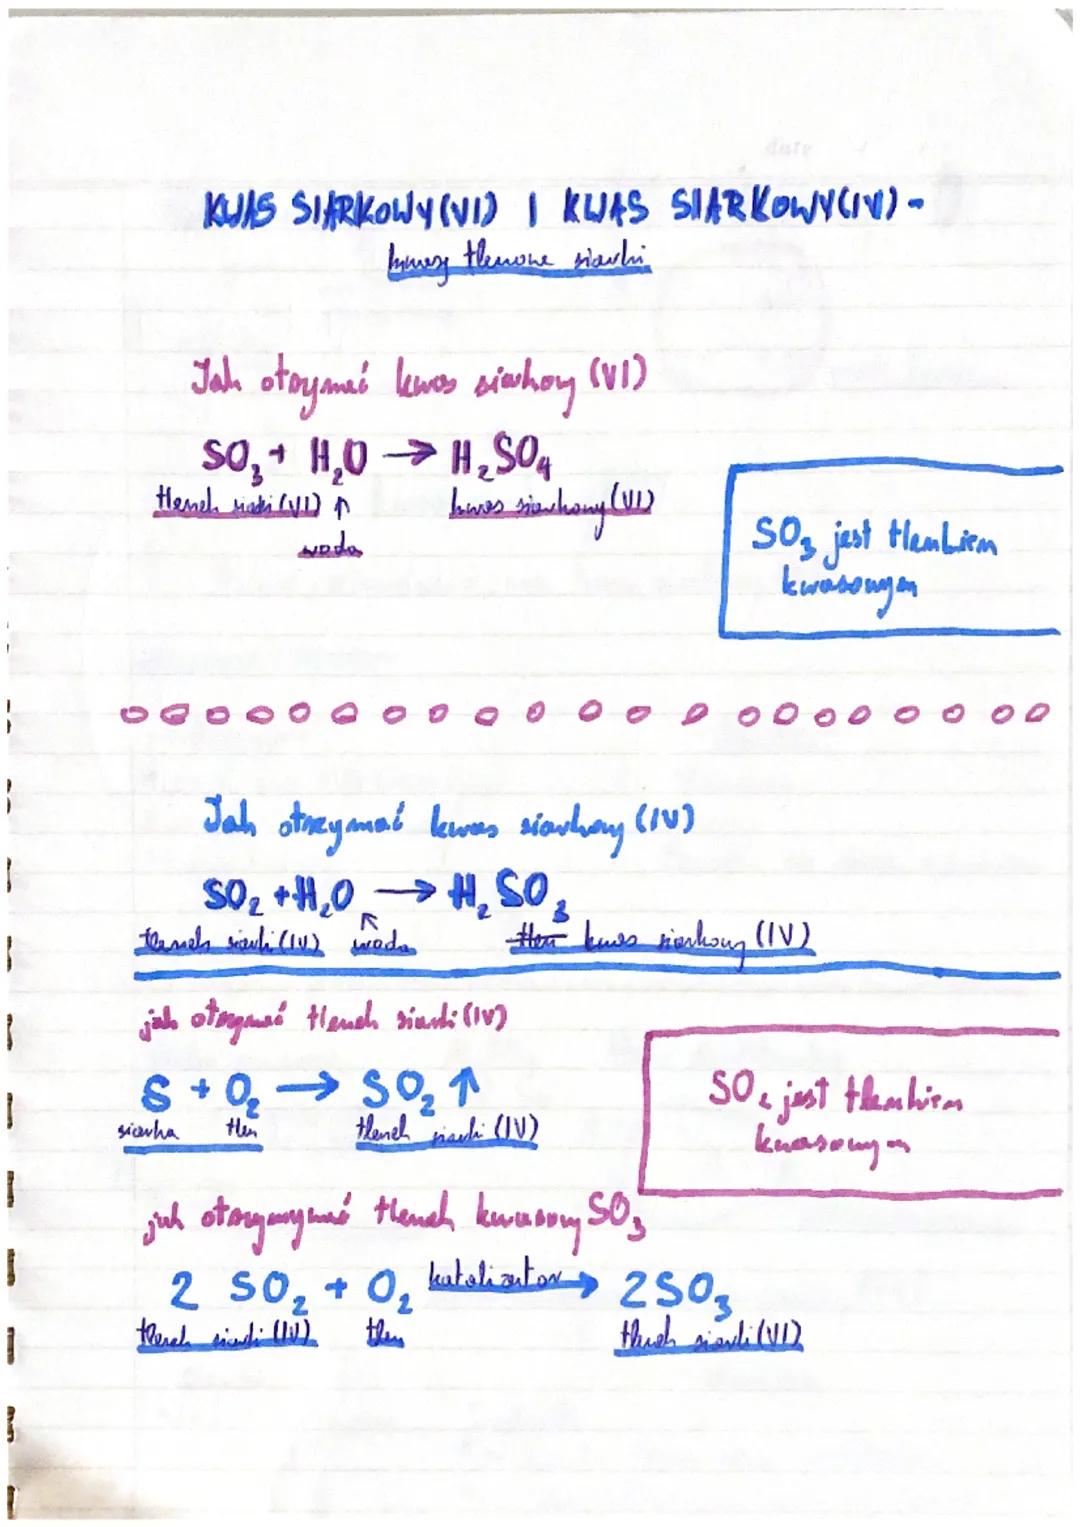 KWAS SIARKOWY(VI) I KWAS SIARKOWY(IV) -
kwasy tlenowe siarki
Jak otrzymać kwas siarkowy (VI)
SO₃ + H₂O → H₂SO₄
tlenek siarki (VI) ↑ kwas siarkowy (VI)
woda
SO₃ jest tlenkiem
kwasowym
Jak otrzymać kwas siarkowy (IV)
SO₂ + H₂O → H₂SO₃
tlenek siarki (IV) woda tlen kwas siarkowy (IV)
jak otrzymać tlenek siarki (IV)
S + O₂ → SO₂ ↑
siarka tlen tlenek siarki (IV)
SO₂ jest tlenkiem
kwasowym
jak otrzymymać tlenek kwasowy SO₃
2 SO₂ + O₂ katalizator → 2SO₃
tlenek siarki (IV) tlen tlenek siarki (VI)